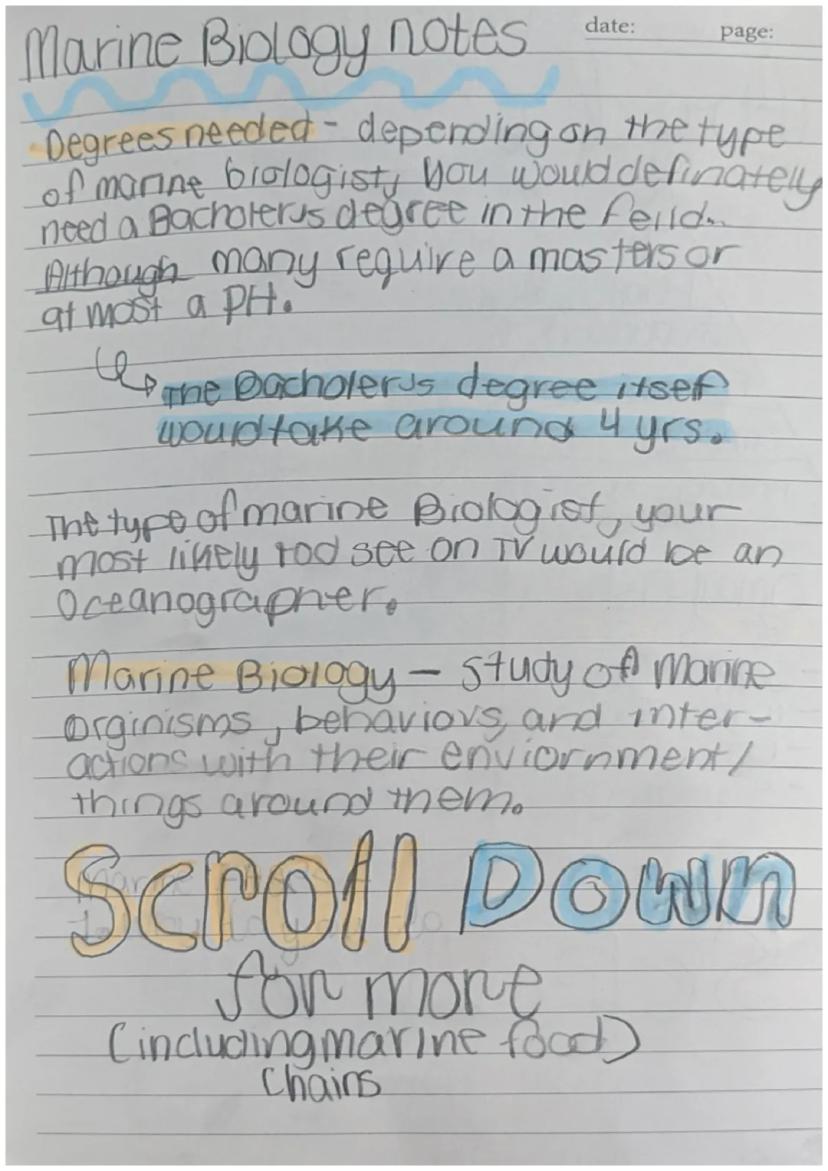 Marine Biology notes
date:
page:
Degrees needed - depending on the type
of marine biologist, you would definately
need a Bacholerus degree in the feild..
Although many require a masters or
at most a PH.
The Bacholerus degree itsef
woud take around 4 yrs.
The type of marine Biologist, your
most likely too see on TV would be an
Oceanographer.
Marine Biology - study of Marine
orginisms, behaviors, and inter-
actions with their enviornment/
things around them.
Scroll Down
for more
(including marine food)
Chains